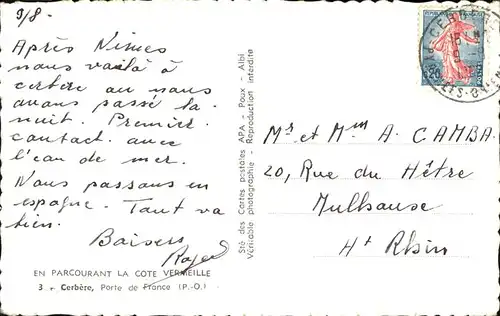 9/8-
Après Nimes
nous voilà à
cerbère ou nous
avons passé la
nuit. Premier
contact avec
l'eau de mer.
Nous passons en
espagne. Tout va
bien.
Baisers
Roger
EN PARCOURANT LA COTE VERMEILLE
3 - Cerbère, Porte de France (P.-O.)
Sté des Cartes postales APA - Poux - Albi
Véritable photographie - Reproduction interdite
CERBÈRE
0,20
Mr et Mm A. CAMBA
20, Rue du Hêtre
Mulhouse
Ht Rhin